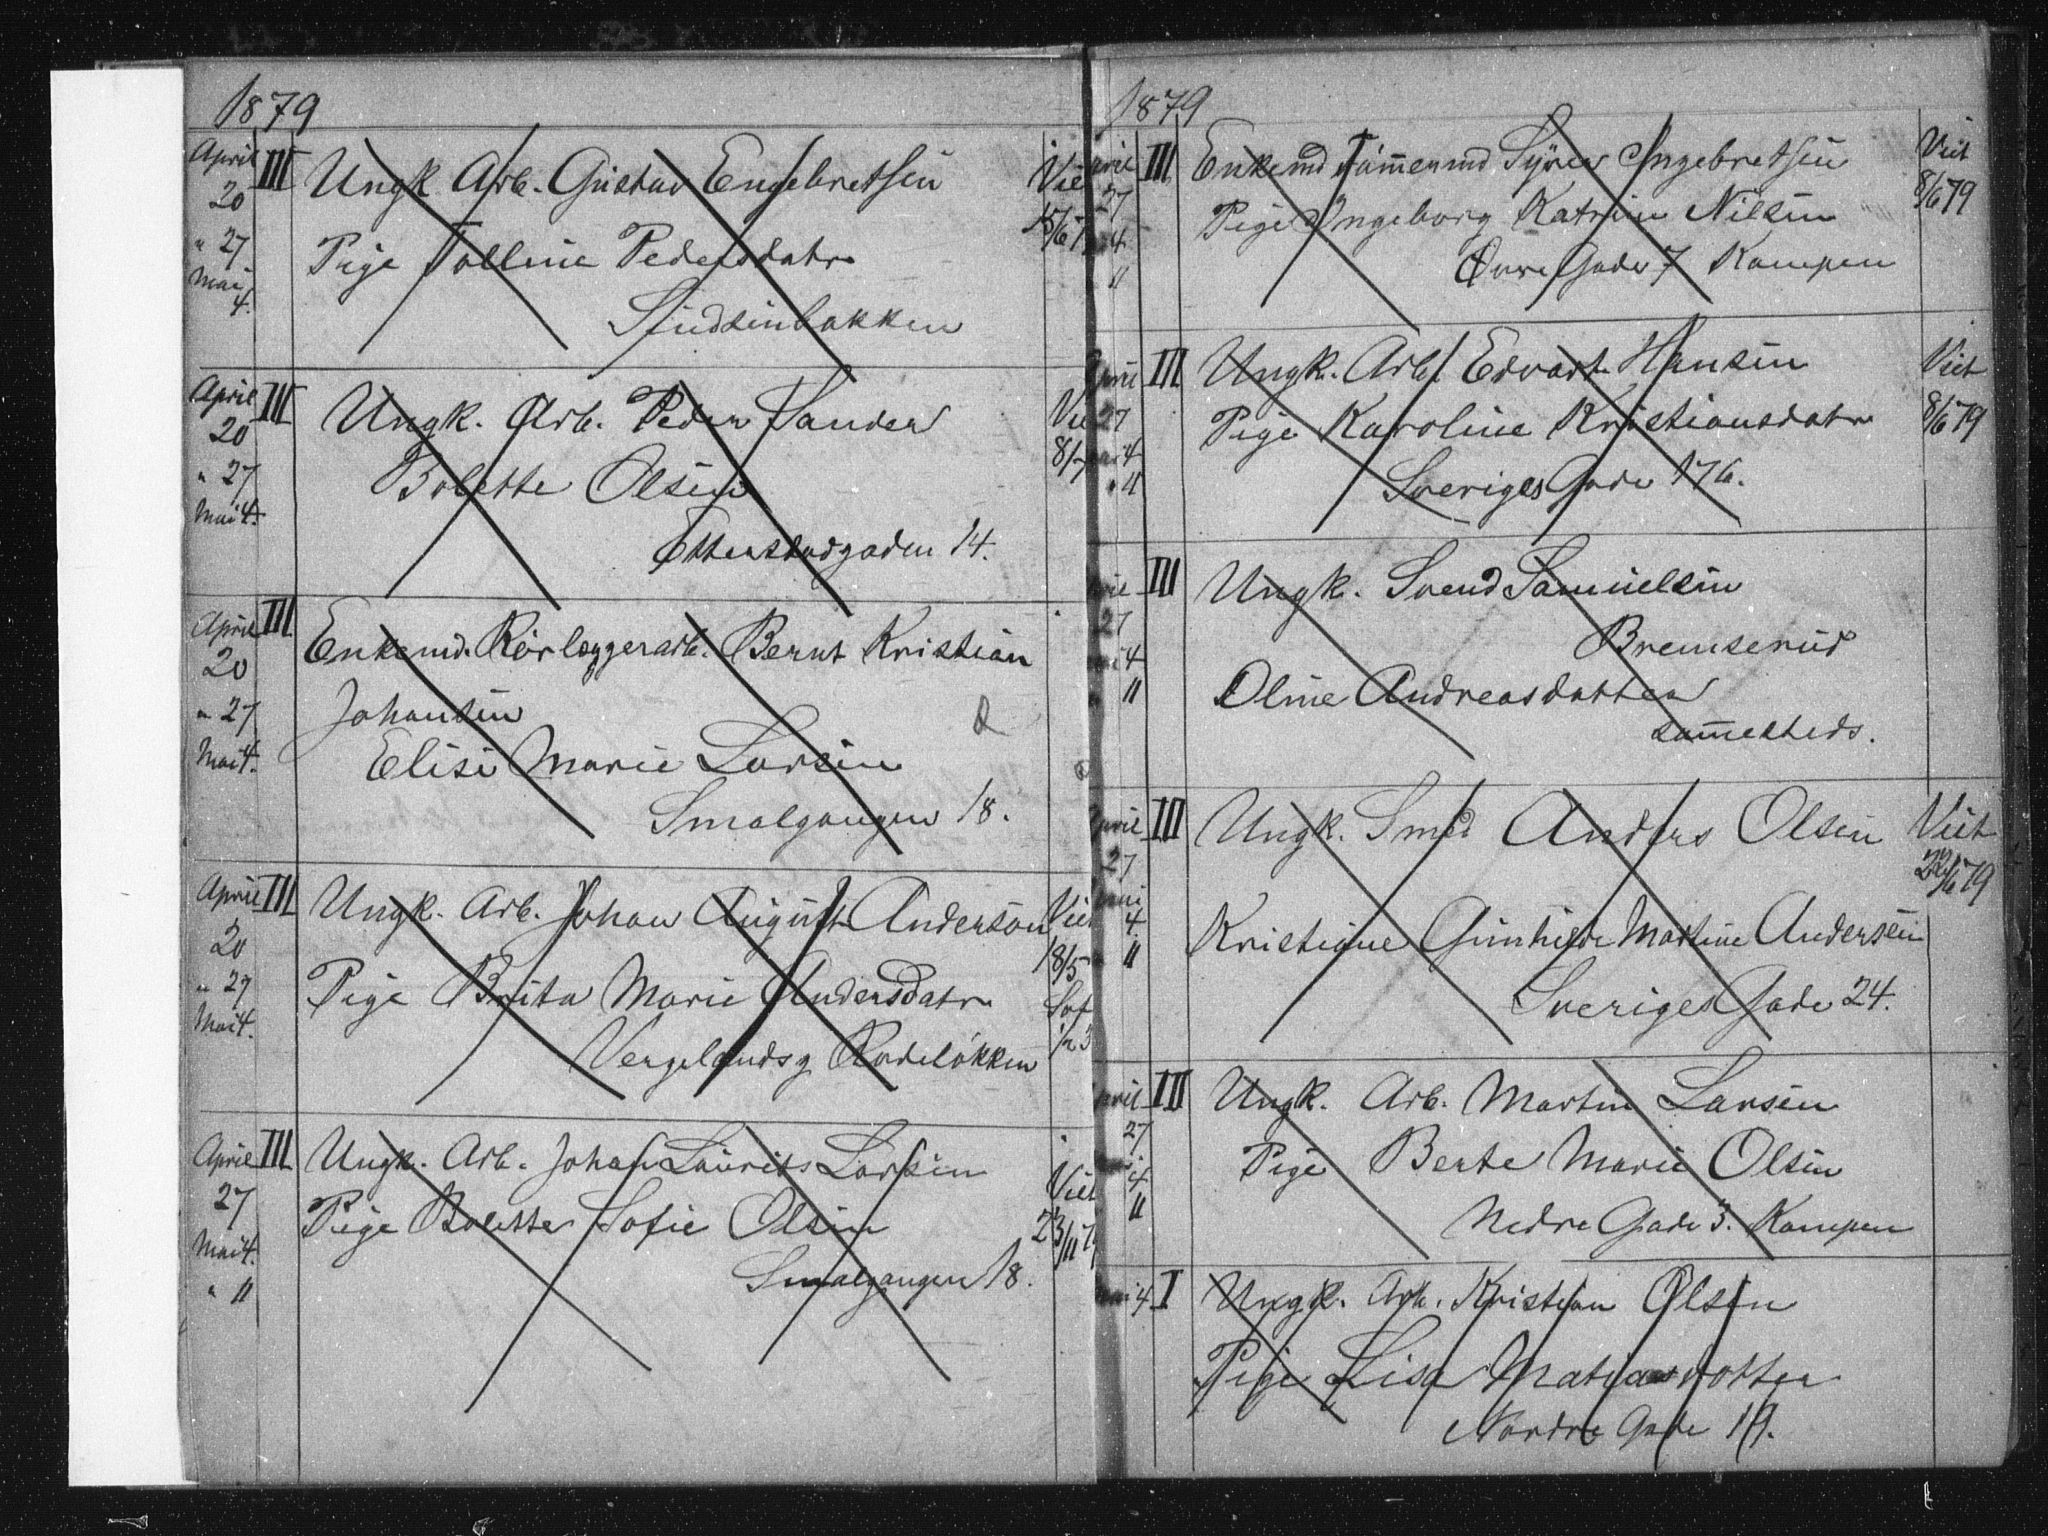 1879
April 20 " 27 Mai 4. III Ungk. Arb. Gustav Engebretsen Viet 15/6 7
Pige Tolline Pedersdatr
Studsinbakken
April 20 " 27 Mai 4. III Ungk. Arb. Peder Sander 8/7
Bolette Olsen
Etterstadgaden 14.
April 20 " 27 Mai 4. III Enkemd. Rörlæggerarb. Bernt Kristian
Johansen
Elise Marie Larsen
Smalgangen 18.
April 20 " 27 Mai 4. III Ungk. Arb. Johan August Anderson Viet 18/5
Pige Brita Marie Andersdatr
Vergelandsg Rodeløkken
April 27 Mai 4. " 11 III Ungk. Arb. Johan Laurits Larsen Viet 23/11 7
Pige Bolette Sofie Olsen
Smalgangen 18.
1879
27 4 11 III Enkemd Tömmermd Syver Ingebretsen Viet 8/6 79
Pige Ingeborg Katrin Nilsen
Övre Gade 7 Kampen
April 27 4 " 11 III Ungk. Arb. Edvart Hansen Viet 8/6 79
Pige Karoline Kristiansdatr
Sveriges Gade 176.
27 4 11 III Ungk. Svend Samuelsen
Bremserud
Oline Andreasdatter
sammesteds.
April 27 Mai 4 11 III Ungk. Smed Anders Olsen Viet 22/6 79
Kristiane Gunhilde Martine Andersen
Sveriges Gade 24.
April 27 4 11 III Ungk. Arb. Martin Larsen
Pige Berte Marie Olsen
Nedre Gade 3. Kampen
Mai 4 I Ungk. Arb. Kristian Olsen
Pige Lisa Matiasdotter
Nordre Gade 19.